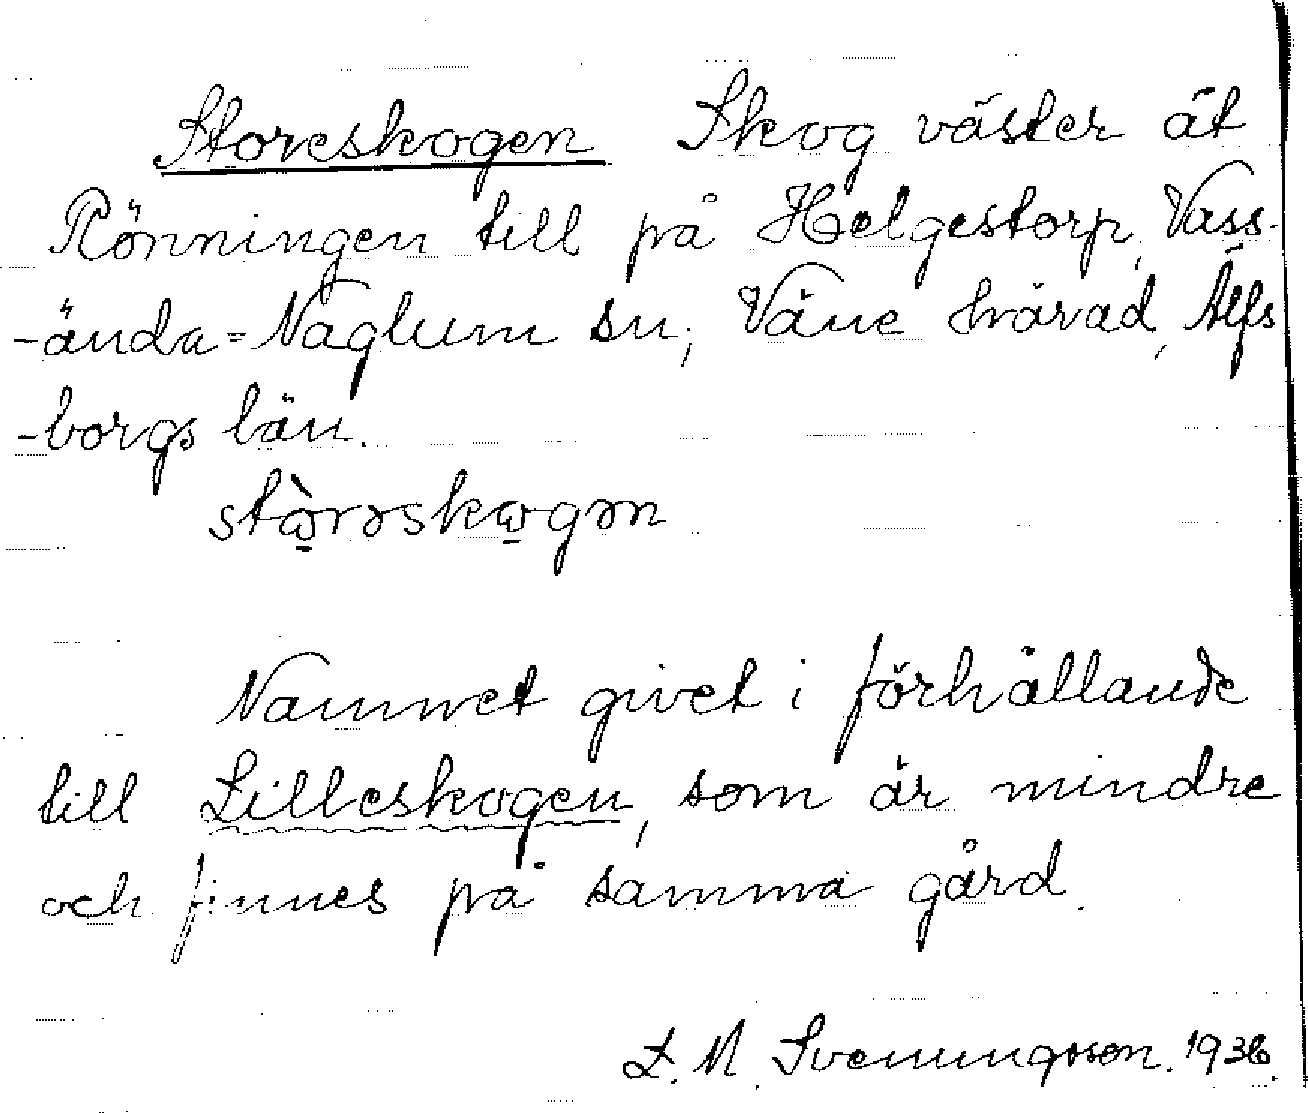 Storeskogen Skog väster åt
Rönningen till på Helgestorp, Vass-
-ända-Naglum sn, Väne härad, Älfs
-borgs län.
stὼ̱rəskω̱gən
Namnet givet i förhållande
till Lilleskogen, som är mindre
och finnes på samma gård.
L. M. Svenungsson. 1936.